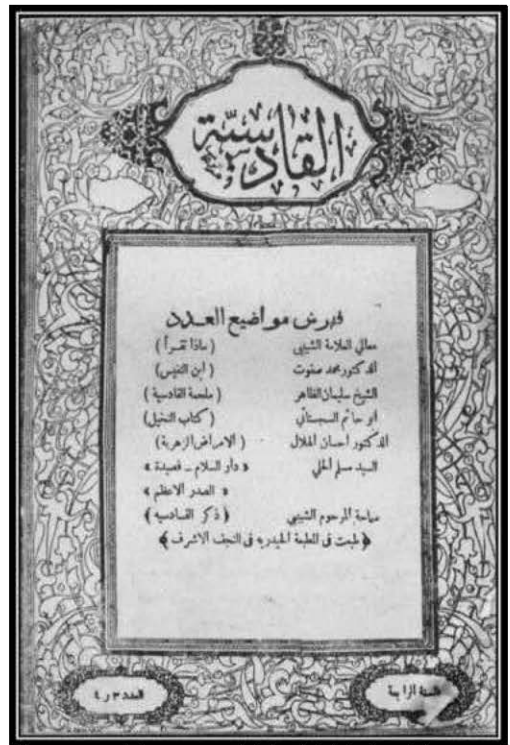 القادسية
فهرس مواضيع العدد
معالي العلامة الشبيبي ( ماذا تقرأ )
الدكتور محمد صفوت ( ابن النفيس )
الشيخ سليمان الظاهر ( ملحمة القادسية )
أبو حاتم السجستاني ( كتاب النخيل )
الدكتور احسان الهلال ( الامراض الزهرية )
السيد مسلم الحلي « دار السلام ــ قصيدة »
« الصدر الاعظم »
سماحة المرحوم الشبيبي ( ذكر القادسيه )
﴿ طبعت في المطبعة الحيدريه في النجف الاشرف ﴾
السنة الرابعة
العدد ٣ و ٤